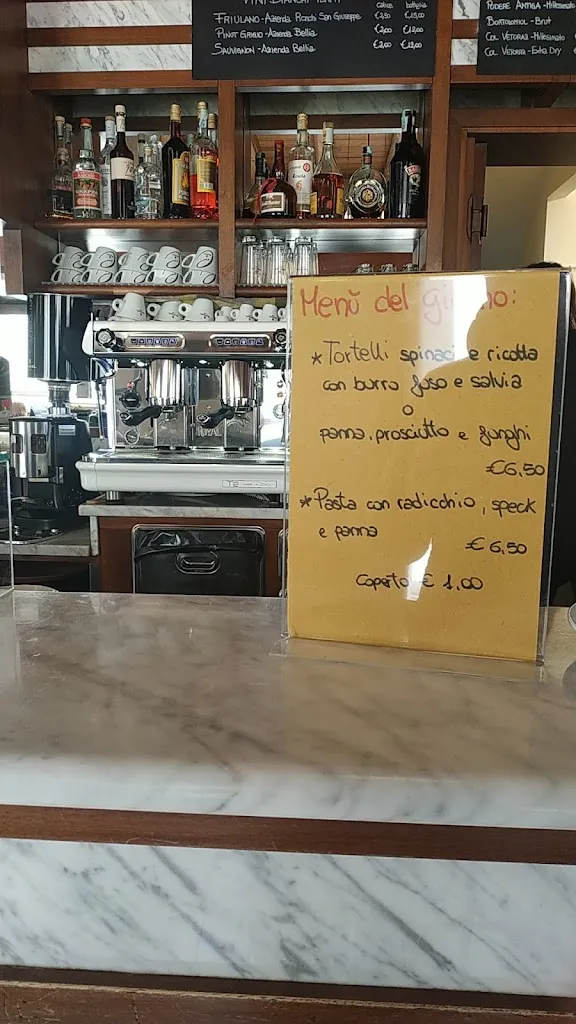 VINI BIANCHI FERMI
calice bottiglia
FRIULANO - Azienda Ronchi San Giuseppe €2,50 €15,00
PINOT GRIGIO - Azienda Bellia €2,00 €12,00
SAUVIGNON - Azienda Bellia €2,00 €12,00
PODERE ANTIGA - Millesimato
BORTOLOMIOL - Brut
COL VETORAZ - Millesimato
COL VETORAZ - Extra Dry
Menù del giorno:
*Tortelli spinaci e ricotta
con burro fuso e salvia
o
panna, prosciutto e funghi
€6,50
*Pasta con radicchio, speck
e panna
€6,50
Coperto € 1,00
ROYAL